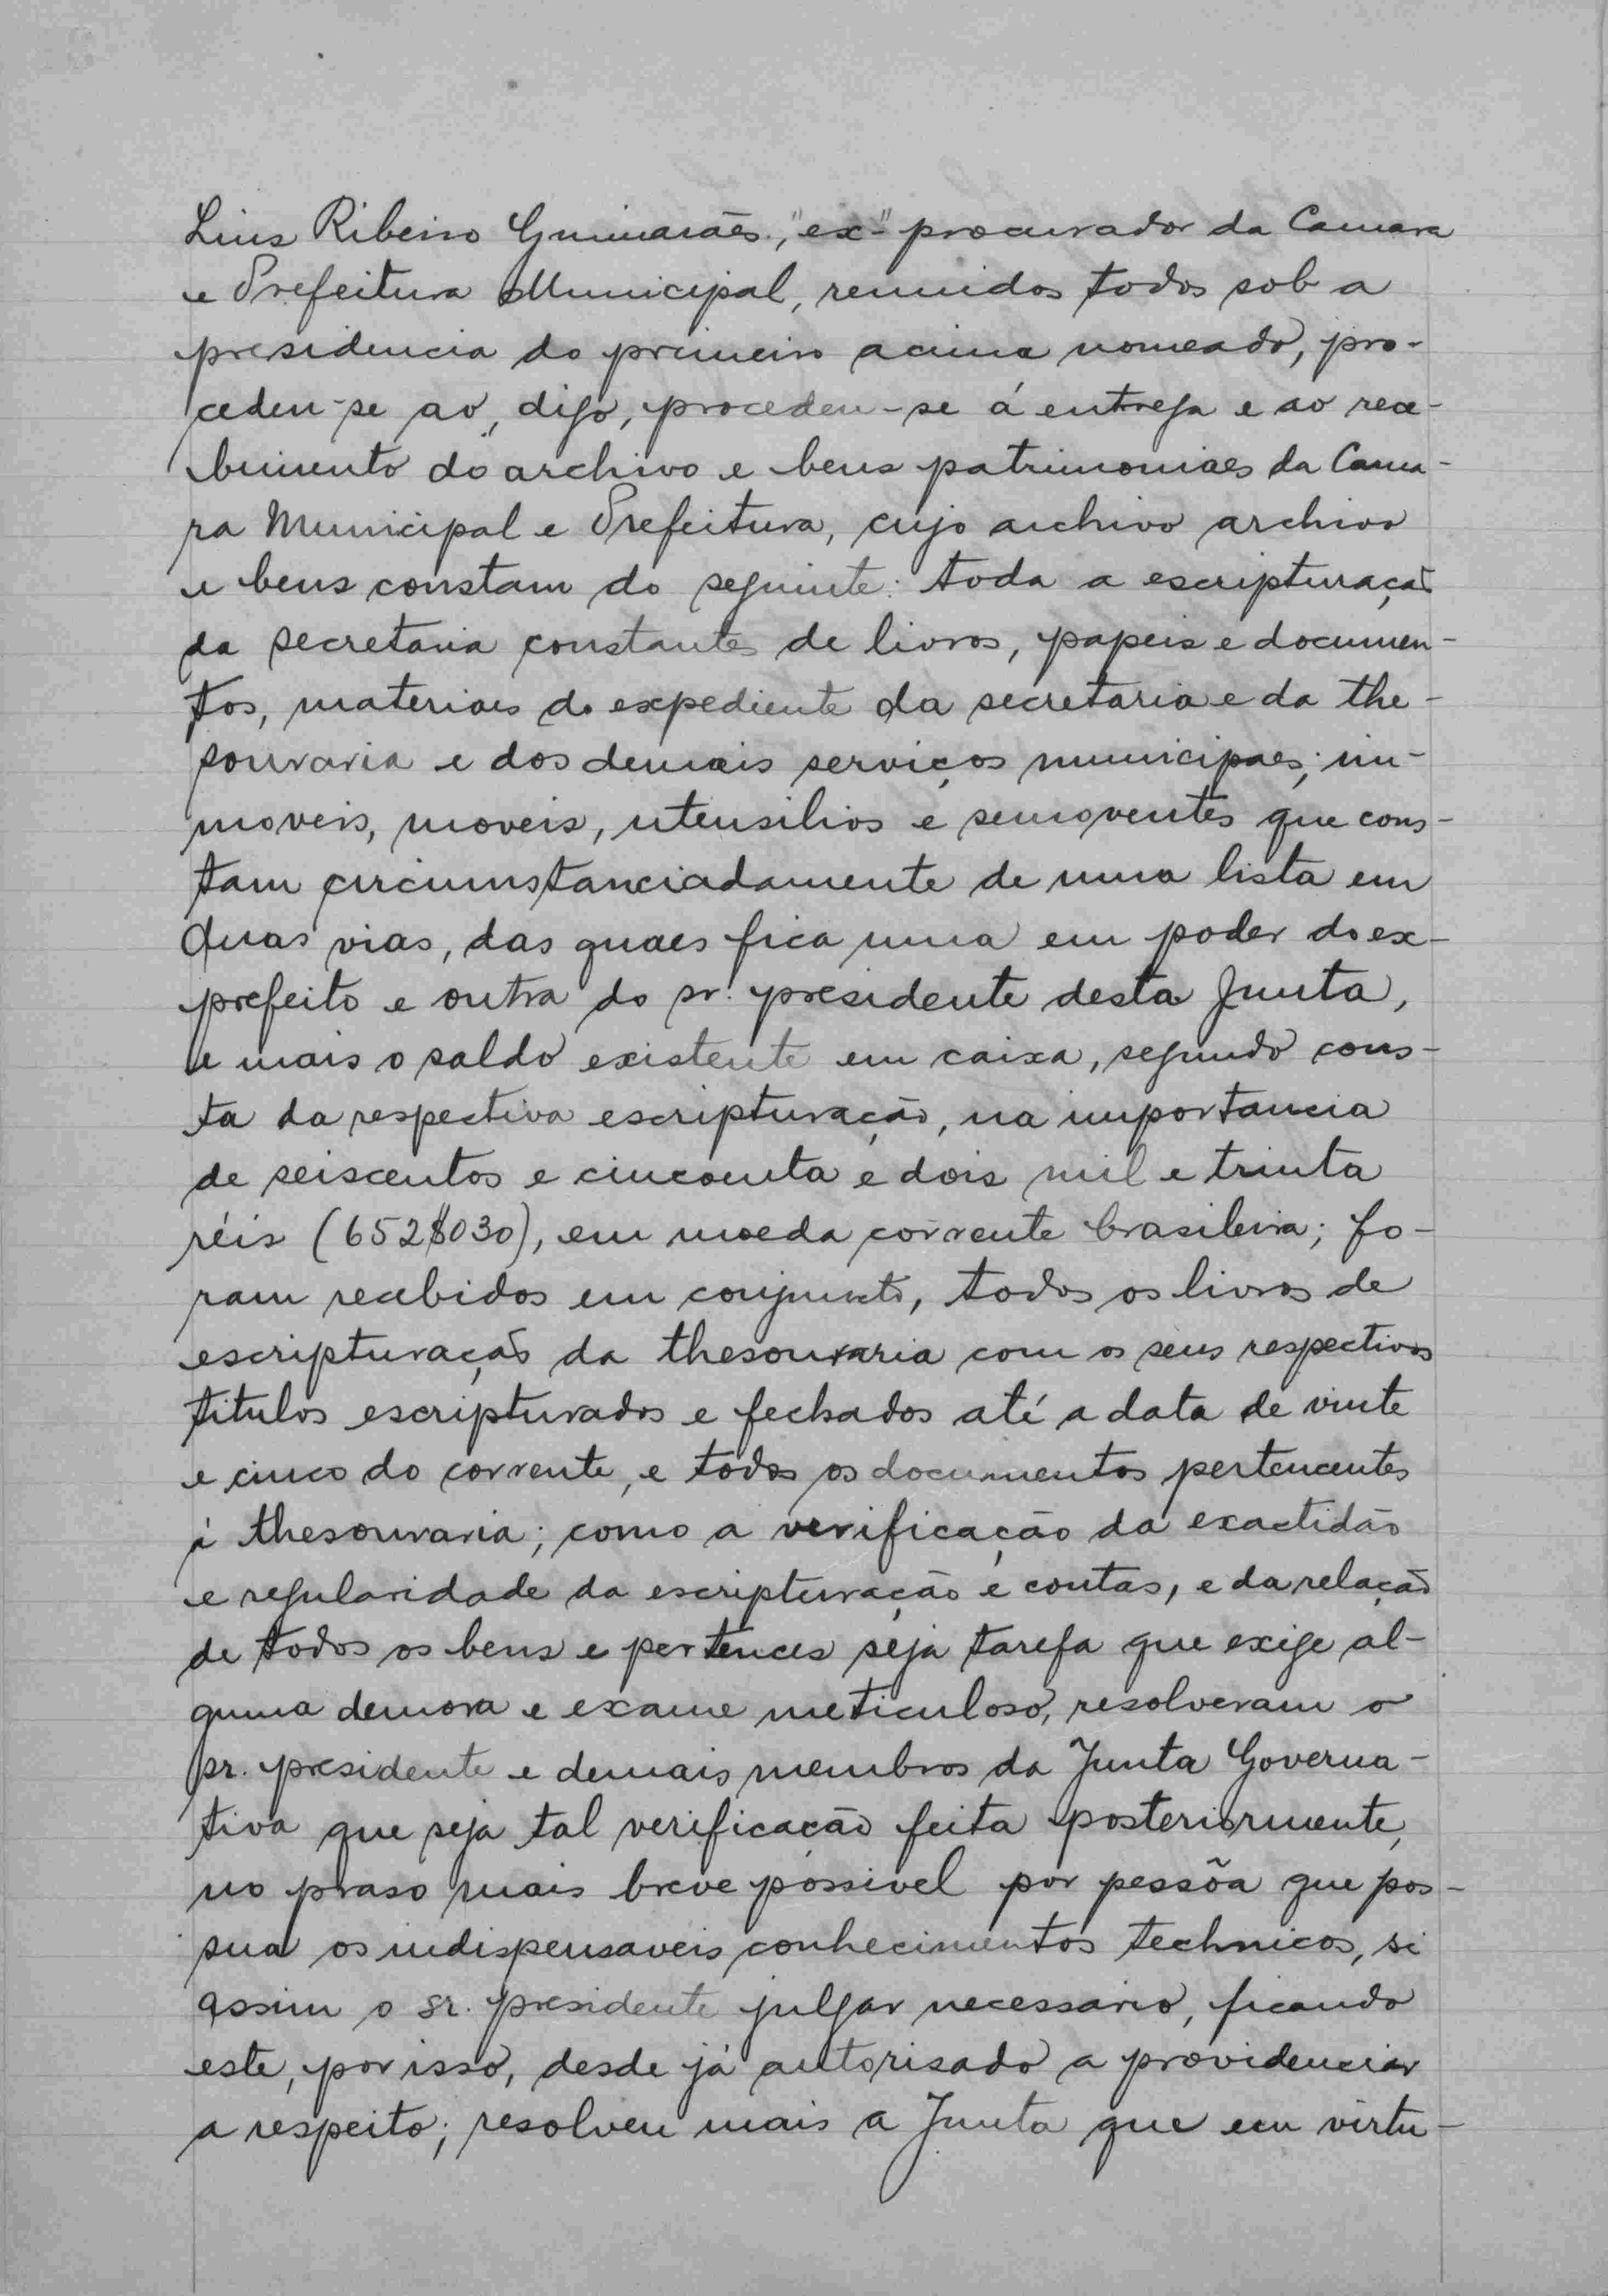 Luiz Ribeiro Guimarães, "ex"-procurador da Camara
e Prefeitura Municipal, reunidos todos sob a
presidencia do primeiro acima nomeado, pro-
cedeu-se ao, digo, procedeu-se á entrega e ao rece-
bimento do archivo e bens patrimoniaes da Cama-
ra Municipal e Prefeitura, cujo archivo archivo
e bens constam do seguinte: toda a escripturação
da secretaria constantes de livros, papeis e documen-
tos, materiaes do expediente da secretaria e da the-
souraria e dos demais serviços municipaes; im-
moveis, moveis, utensilios e semoventes que cons-
tam circumstanciadamente de uma lista em
duas vias, das quaes fica uma em poder do ex-
prefeito e outra do sr. presidente desta Junta,
e mais o saldo existente em caixa, segundo cons-
ta da respectiva escripturação, na importancia
de seiscentos e cincoenta e dois mil e trinta
réis (652$030), em moeda corrente brasileira; fo-
ram recebidos em conjuncto, todos os livros de
escripturação da thesouraria com os seus respectivos
titulos escripturados e fechados até a data de vinte
e cinco do corrente, e todos os documentos pertencentes
á thesouraria; como a verificação da exactidão
e regularidade da escripturação e contas, e da relação
de todos os bens e pertences seja tarefa que exige al-
guma demora e exame meticuloso, resolveram o
sr. presidente e demais membros da Junta Governa-
tiva que seja tal verificação feita posteriormente,
no praso mais breve possivel por pessõa que pos-
sua os indispensaveis conhecimentos technicos, si
assim o sr. presidente julgar necessario, ficando
este, por isso, desde já autorisado a providenciar
a respeito; resolveu mais a Junta que em virtu-